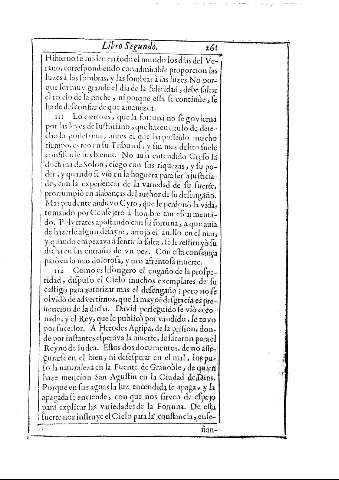 Libro Segundo. 261
Hibierno se miden en todo el mundo los dias del Ve-
rano, correspondiendo con admirable proporcion las
luzes à las sombras, y las sombras à las luzes. No por-
que sea muy grande el dia de la felicidad, debe faltar
el rezelo de la noche, ni porque esta se continúe, se
ha de desconfiar de que amanezca.
111 Lo cierto es, que la fortuna no se govierna
por las leyes de Iustiniano, que hazen titulo de dere-
cho la posesion, antes el que ha poseido mucho
tiempo, es reo en su Tribunal, y su mas delito suele
consistir en sus bienes. No avia entendido Creso la
doctrina de Solon, ciego con sus riquezas, y su po-
der, y quando se viò en la hoguera para ser ajusticia-
do, con la experiencia de la variedad de su suerte,
prorrumpiò en alabanças del author de su desengaño.
Mas prudente anduvo Cyro, que le perdonò la vida,
tomando por Consejero à hombre tan escarmenta-
do. Polycrates apostando con su fortuna, a que avia
de hazerle algun desayre, arrojò el anillo en el mar,
y quando empezava à sentir la falta, se le restituyò su
dicha en las entrañas de un pez. Con esta confiança
parò en la mas dolorosa, y mas afrentosa muerte.
112 Como es lisongero el engaño de la prospe-
ridad, dispuso el Cielo muchos exemplares de su
castigo para autorizar mas el desengaño; pero no se
olvidò de advertirnos, que la mayor desgracia es pre-
nuncion de la dicha. David perseguido se viò coro-
nado, y el Rey, que le publicò por vandido, le tuvo
por sucessor. A Herodes Agripa, de la prision, don-
de por instantes esperava la muerte, le sacaron para el
Reyno de Iudea. Estos dos documentos, de no asse-
gurarse en el bien, ni desesperar en el mal, los pu-
so la naturaleza en la Fuente de Granoble, de quien
haze mencion San Agustin en la Ciudad de Dios.
Porque en sus aguas la luz encendida se apaga, y la
apagada se enciende, con que nos sirven de espejo
para explicar las variedades de la Fortuna. De esta
suerte nos instruye el Cielo para la constancia, ense-
ñan-